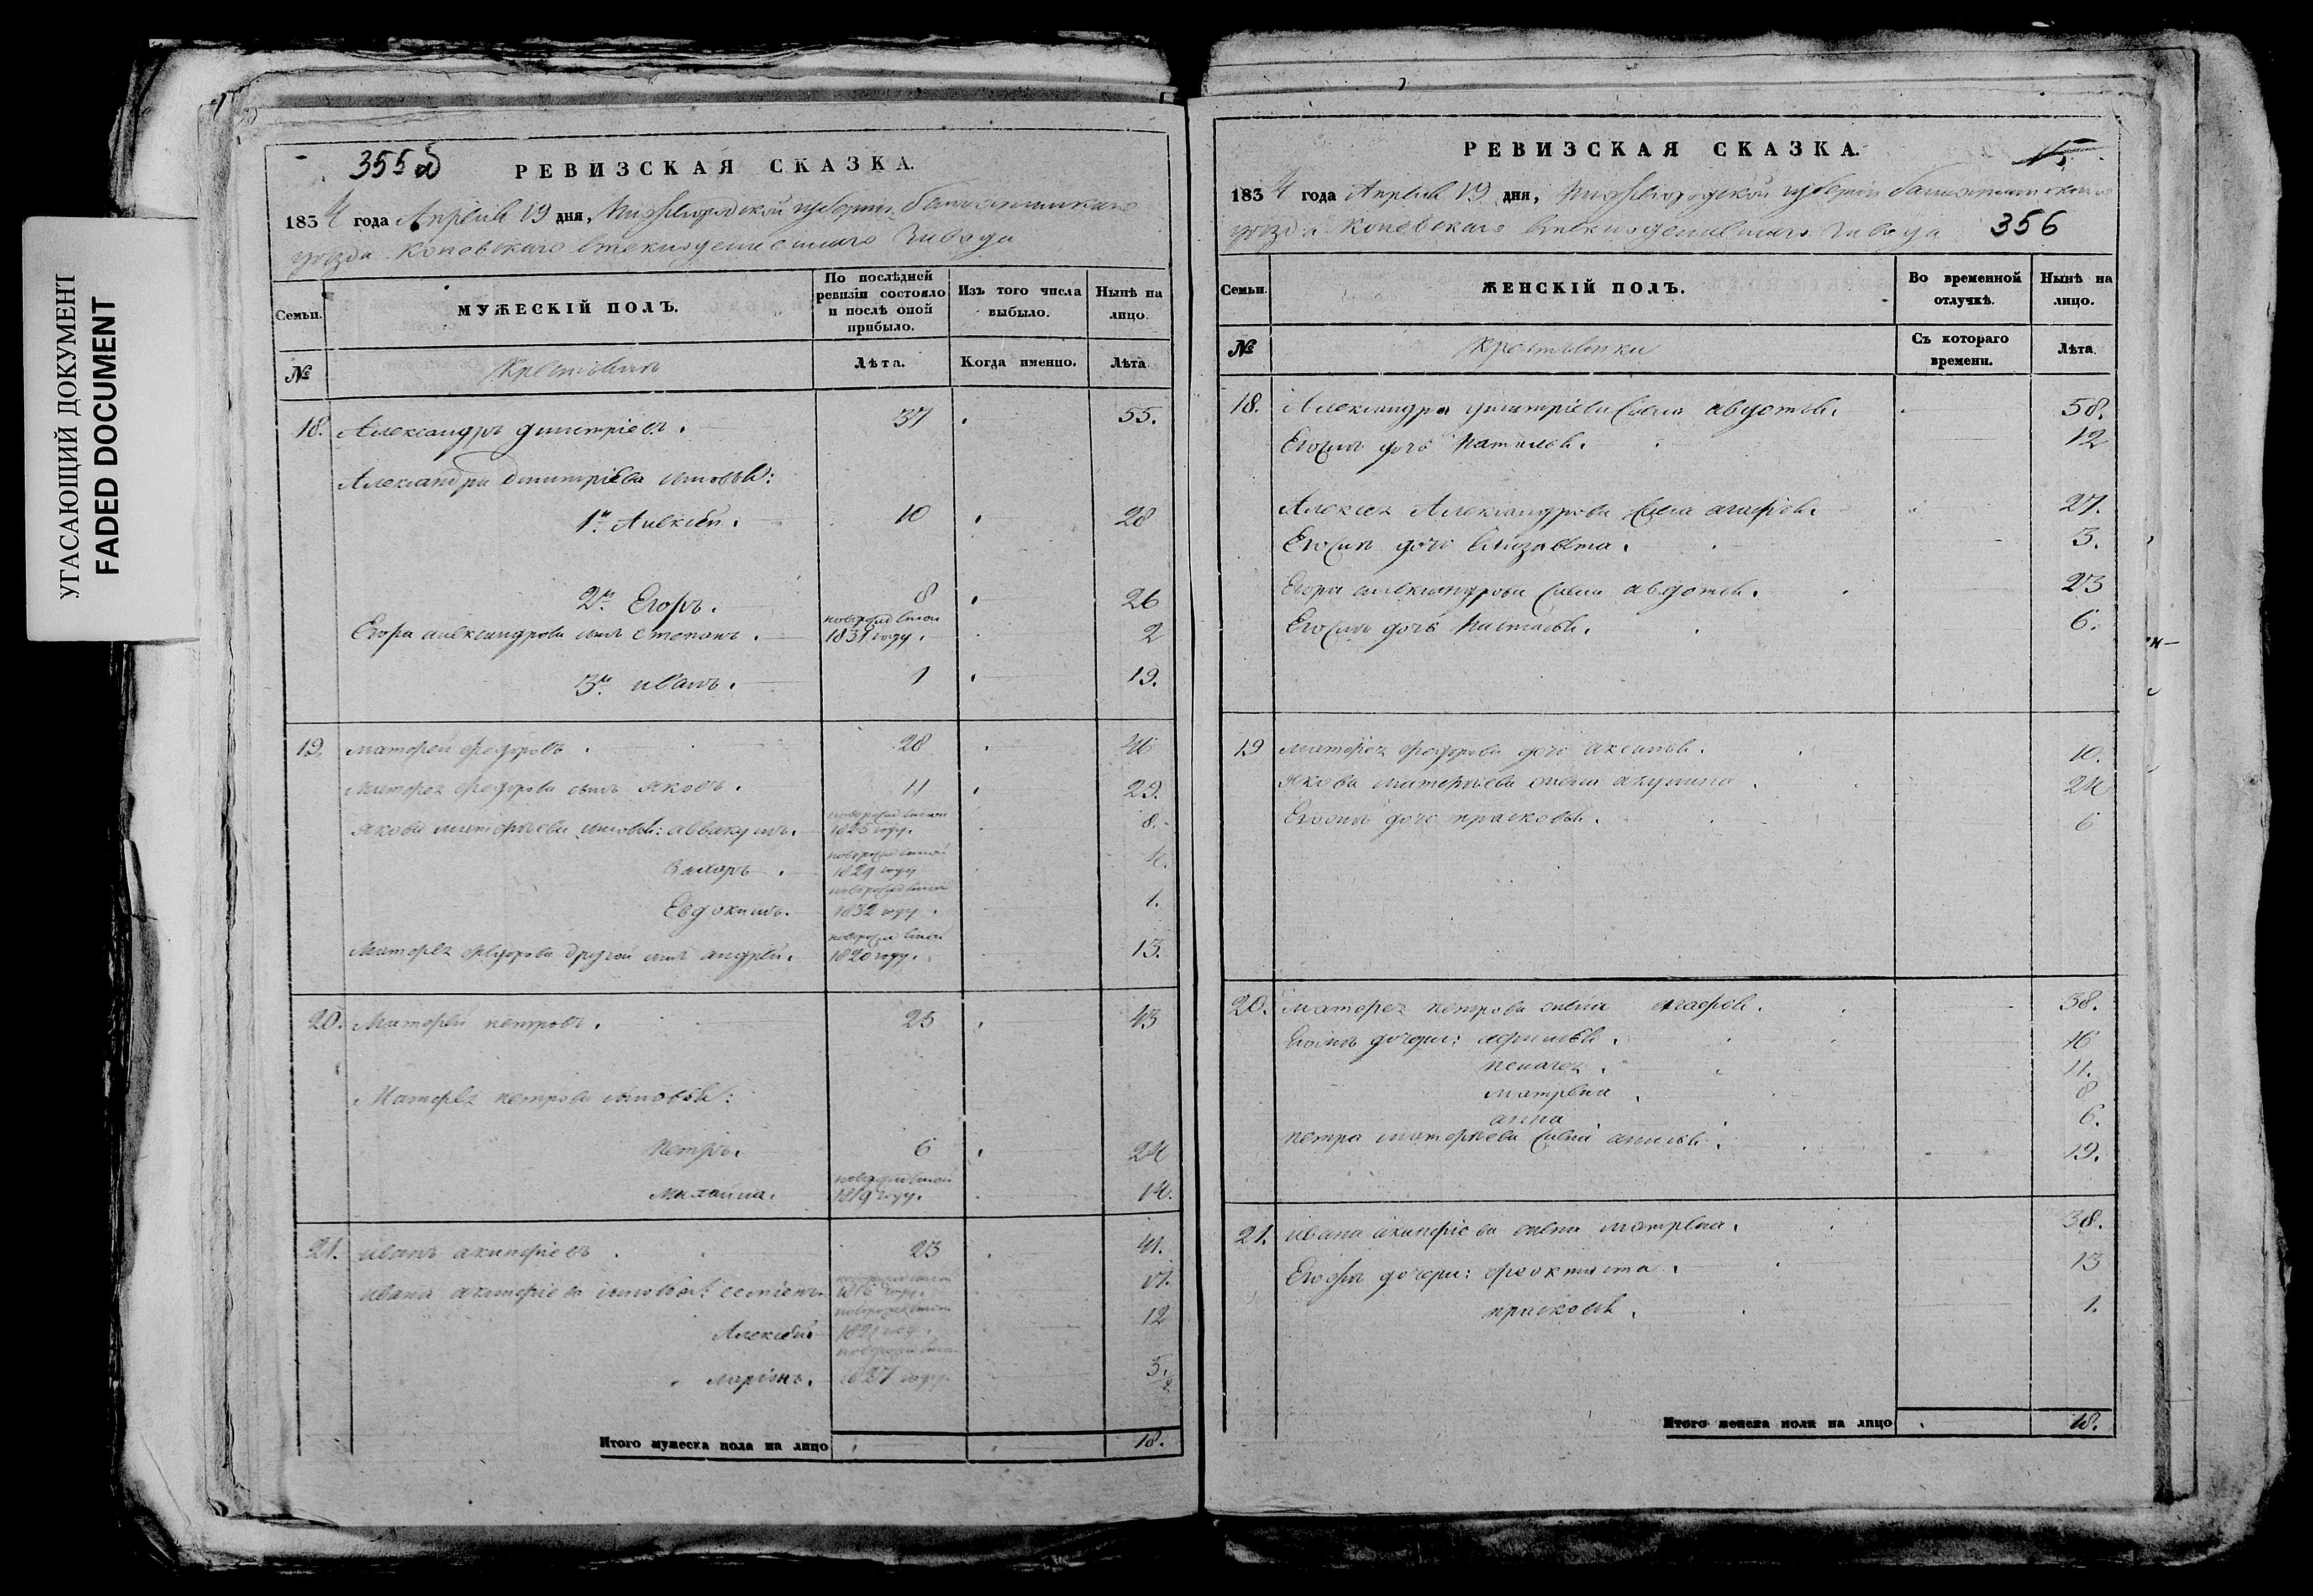 УГАСАЮЩИЙ ДОКУМЕНТ
FADED DOCUMENT
355 об
РЕВИЗСКАЯ СКАЗКА.
1834 года Апреля 19 дня, Нижегородской губернии
уезда завода
Семьи.
МУЖЕСКІЙ ПОЛЪ.
По послѣдней ревизіи состояло и послѣ оной прибыло.
Изъ того числа выбыло.
Нынѣ на лицо.
№
Крестьянъ
Лѣта.
Когда именно.
Лѣта.
18. Александръ дмитріевъ. 37 55.
Александра дмитріева сыновья:
1й Алексѣй. 10 28
2й Егоръ. 8 26
Егора александрова сынъ степанъ. новорожденной 1831 году. 2
3й иванъ. 1 19.
19. матфей федоровъ 28 46
Матфея федорова сынъ яковъ. 11 29.
якова матфеева сыновья: аввакумъ. новорожденной 1825 году. 8.
новорожденной 1829 году 4.
Евдокимъ. новорожденной 1832 году. 1.
Матфея федорова другой сынъ андрей. новорожденной 1820 году. 13.
20. Матфей петровъ. 25 43
Матфея петрова сыновья:
Петръ. 6 24
Михайла. новорожденной 1819 году. 14.
21. иванъ акинфіевъ 23 41.
ивана акинфіева сыновья: новорожденной 1816 году. 17.
Алексѣй новорожденной 1821 году. 12
ларіонъ. новорожденной 1827 году. 5.
Итого мужеска пола на лицо 18.
РЕВИЗСКАЯ СКАЗКА.
1834 года Апреля 19 дня, Нижегородской губерніи
уезда завода 356
Семьи.
ЖЕНСКІЙ ПОЛЪ.
Во временной отлучкѣ.
Нынѣ на лицо.
№
Крестьянки
Съ котораго времени.
Лѣта.
18. Александра дмитріева жена авдотья. 58.
Егожъ дочь Наталья. 12
Алексея Александрова жена агафья. 27.
Егожъ дочь Елизавета. 3.
Егора александрова жена авдотья. 23
Егожъ дочь Наталья. 6.
19 матфея федорова дочь аксинья. 10.
якова матфеева жена акулина 24
Егожъ дочь прасковья. 6
20. матфея петрова жена агафья. 38.
Егожъ дочери: афимья. 16
пелагея. 11.
матрена. 8
анна. 6.
петра матфеева жена 19.
21. ивана акинфіева жена матрена. 38.
Егожъ дочери: феоктиста. 13
прасковья. 1.
Итого женска пола на лицо 18.